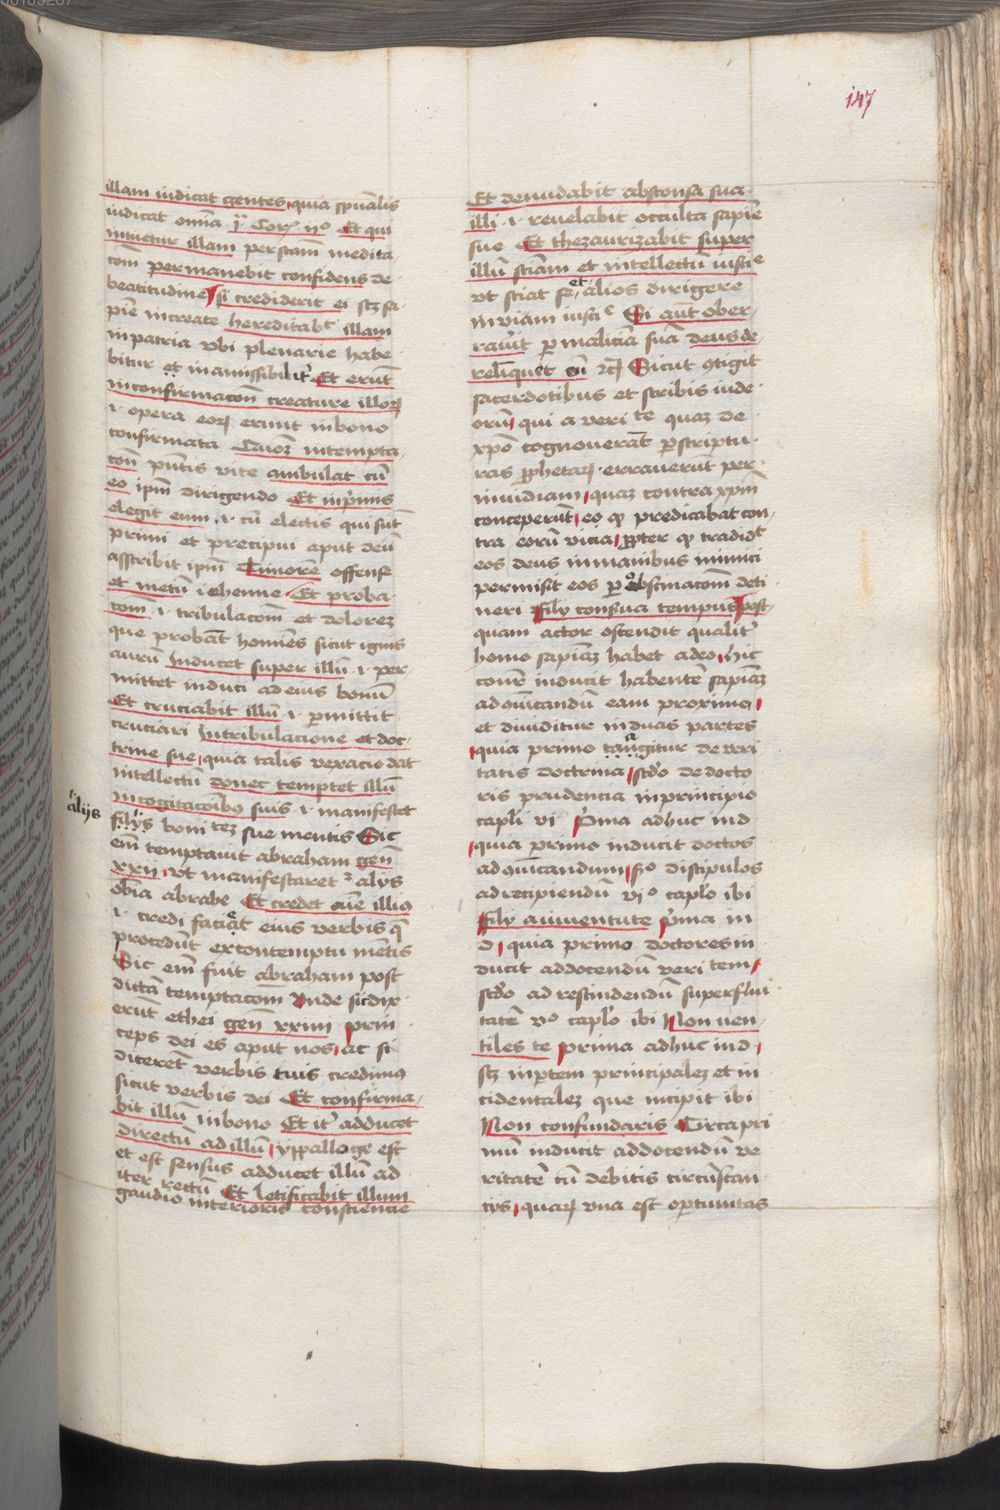 147
illam iudicat gentes quia spūalis
iudicat omīa ī Corꝝ ijº Et qui
intuetur illam per stam medita
coīn permanebit confidens de
beatitudine si crediderit ei sꝫ sa
pīe increate hereditabᵗ illam
in patria ubi plenarie habe
bitur et inamissibilitˀ Et erūt
in confirmacōn creature illoꝝ
.i. opera eoꝝ erunt in bono
confirmata Quoꝫ in tempta
cōn pñtis vite ambulat cū
eo ipm̄ dirigendo Et in pͥmis
elegit eum .i. cū electis qui sūt
primi et precipui aput deū
asscribit ipm̄ Timorem offense
et metū iehenne Et proba
cōm .i. tribulacōm et dolorez
que probāt homīes sicut ignis
aurū Inducet super illū .i. per
mittet induci ad eius bonū
Et cruciabit illū .i. ꝑmittit
cruciari In tribulacione et doc
trine sue quia talis vexacio dat
intellectū donec temptet illū
in cogitacōibꝰ suis .i. manifestet
alijs
filijs bonitez sue mentis Sic
em̄ temptavit abraham gen̄
xxij ut manifestaretᷣ alijs
obīa abrahe Et credet aīe illiꝰ
.i. credi faciat eius verbis q̄
procedūt ex contemptu mētis
Sic em̄ fuit abraham post
dictā temptacōm Unde sic dix
erūt ethei gen̄ xxiij prin
ceps dei es aput nos ac si
dicerēt verbis tuis credimꝰ
sicut verbis dei Et confirma
bit illū in bono Et itˀ adducet
directū ad illū ypallage est
et est sensus adducet illū ad
iter rectū Et letificabit illum
gaudio interioris consciencie
Et denudabit absconsa sua
illi .i. revelabit occulta sapīe
sue Et thezaurizabit super
illū sciam et intellectū iusticᵉ
ut sciat se et alios dirigere
in viam iusticᵉ Si aūt ober
raverit ꝑ maliciā suā deus de
relinquet eū ⁊cꝫ Sicut ꝯtigit
sacerdotibus et scribis iude
orū qui a veritate quaꝫ de
xp̄o cognoverāt ꝑ scriptu
ras ꝓphetaꝝ erraverūt per
invidiam quaꝫ contra xpm̄
conceperūt eo qꝫ predicabat con
tra eorū vicia ꝓpter qꝫ tradidᵗ
eos deus in manibus inimici
permisit eos ꝑ obstinacōm deti
neri Fili conserva tempus Post
quam actor ostendit qualitˀ
homo sapīaꝫ habet a deo hic
conˀr inducit habentē sapīaꝫ
ad ꝯmunicandū eam proximo
et dividitur in duas partes
quia primo tangitur de veri
tatis doctrina scd̄o de docto
ris prudencia in principio
capli vi Prima adhuc in d
quia primo inducit doctos
ad ꝯmunicandum scº discipulos
ad recipiendū viº capl̄o ibi
Fili a iuventute pͥma in
d quia primo doctores in
ducit ad docendū veritatem
scd̄o ad rescindendū superflui
tatē vº capl̄o ibi Non ven
tiles te prima adhuc in d
sꝫ in ꝑtem principalez et in
cidentalez que incipit ibi
Non confundaris Circa pri
mū inducit ad docendū ve
ritatē cū debitis circūstan
cijs quaꝝ una est oportunitas